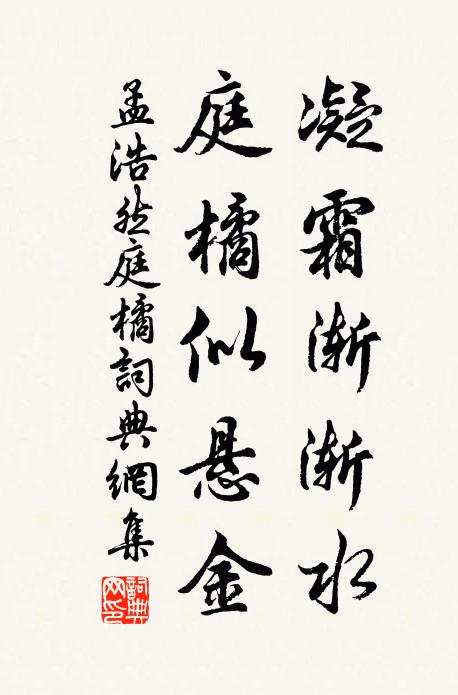 凝霜渐渐水
庭橘似悬金
孟浩然庭橘詞典網集
詞典网印